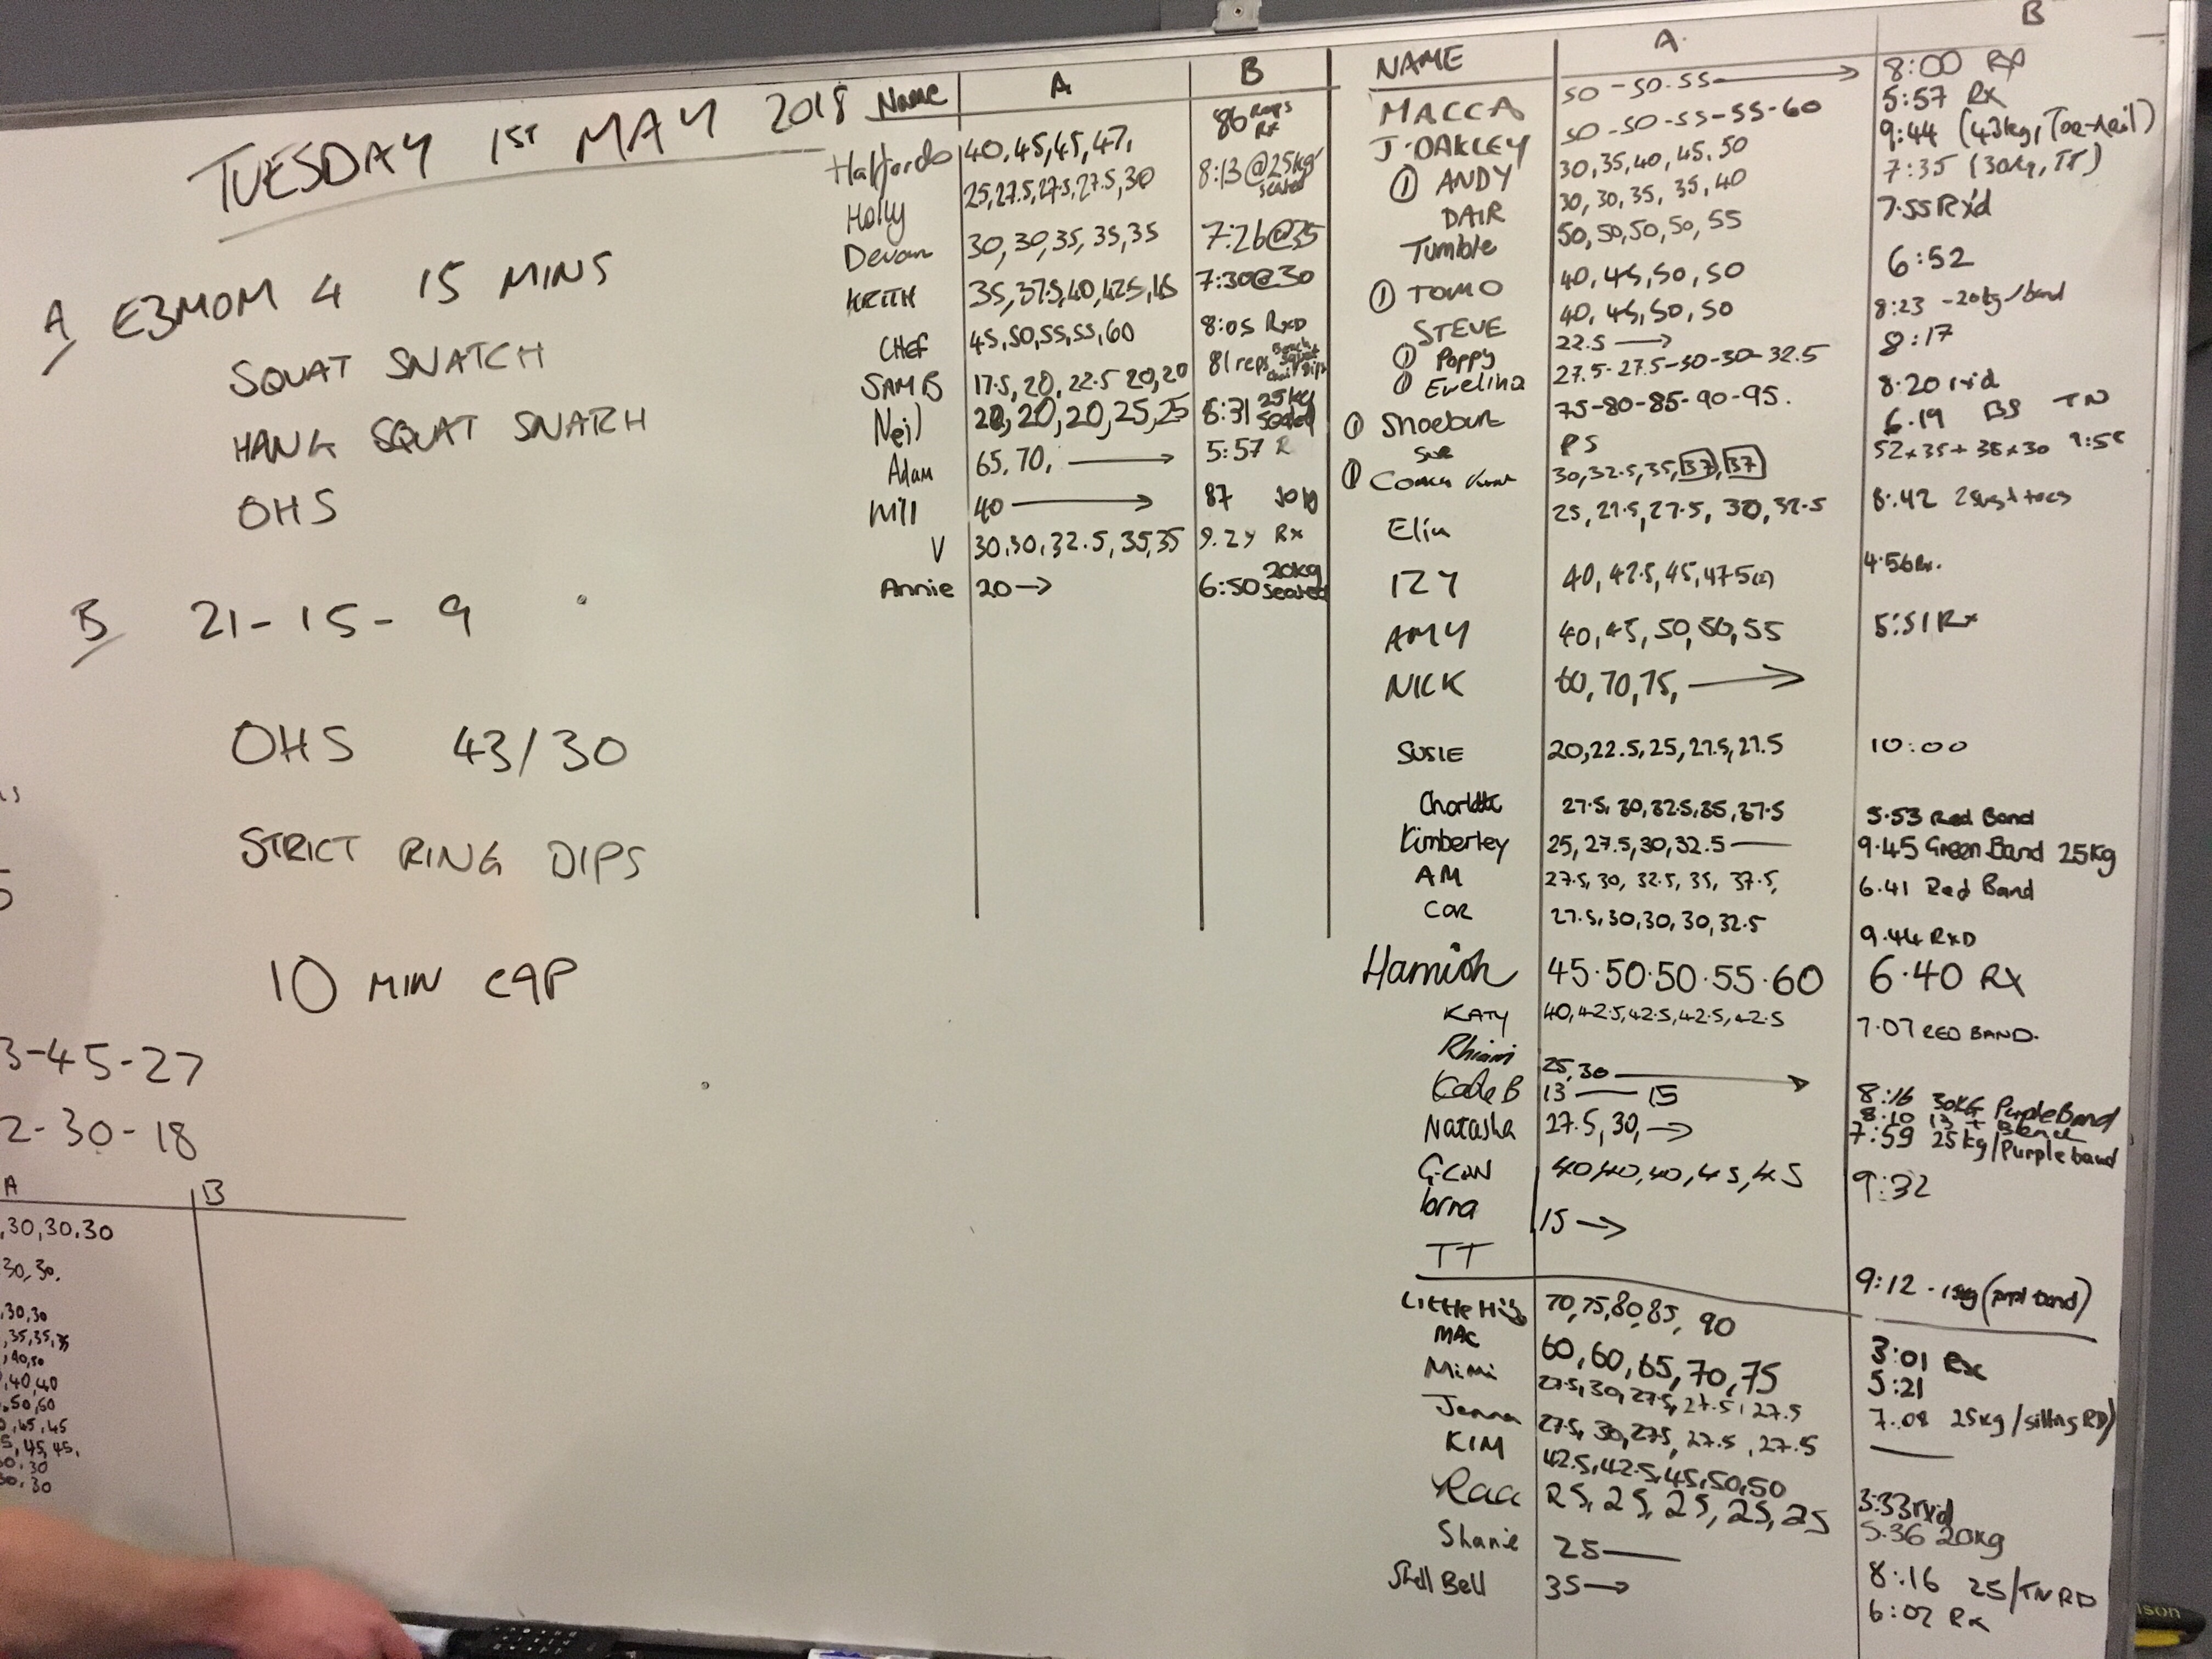 TUESDAY 1ST MAY 2018
A E3MOM 4 15 MINS
SQUAT SNATCH
HANG SQUAT SNATCH
OHS
B 21-15-9
OHS 43/30
STRICT RING DIPS
10 MIN CAP
3-45-27
2-30-18
A B
,30,30,30
30,30.
,30,30
,35,35,35
,40,50
,40,40
,45,45
,45,45,
30
30,30
Name A B
Halfords 40,45,45,47, 86 Reps Rx
Holly 25,27.5,27.5,27.5,30 8:13@25kg seated
Devan 30,30,35,35,35 7:26@35
KEITH 35,37.5,40,42.5,45 7:30@30
CHEF 45,50,55,55,60 8:05 RXD
SAM B 17.5,20,22.5 20,20 81 reps
Neil 20,20,20,25,25 6:31 25kg Seated
Adam 65,70, → 5:57 R
Will 40 → 87
V 30,30,32.5,35,35 9.29 Rx
Annie 20 → 6:50 20kg Seated
NAME A B
MACCA 50-50-55 → 8:00 RX
J.OAKLEY 50-50-55-55-60 5:57 Rx
① ANDY 30,35,40,45,50 9:44 (43kg, Toe-nail)
DAIR 30,30,35,35,40 7:35 (30kg, TT)
Tumble 50,50,50,50,55 7.55 Rx'd
① TOMO 40,45,50,50 6:52
STEVE 40,45,50,50 8:23 -20kg/band
① Poppy 22.5 → 8:17
① Evelina 27.5-27.5-30-30-32.5 8.20 rx'd
① Shoeburt 75-80-85-90-95. 6.19 BS TN
Sue PS 52x35+38x30
① Coach 30,32.5,35,37,37
25,27.5,27.5,30,32.5 8:42
IZY 40,42.5,45,47.5(2) 4.56 Rx.
AMY 40,45,50,50,55 5:51 Rx
NICK 60,70,75, →
SUSIE 20,22.5,25,27.5,27.5 10:00
Charlotte 27.5,30,32.5,35,37.5 5.53 Red Band
Kimberley 25,27.5,30,32.5 — 9.45 Green Band 25kg
AM 27.5,30,32.5,35,37.5, 6.41 Red Band
COR 27.5,30,30,30,32.5 9.44 RXD
Hamish 45.50.50.55.60 6.40 Rx
KATY 40,42.5,42.5,42.5,42.5 7.07 RED BAND.
25,30 → 8:16 30KG Purple Band
Kate B 13 — 15 8:10 13 +
Natasha 27.5,30, → 7:59 25kg/Purple band
G-CON 40,40,40,45,45 9:32
lorna 15 → 9:12
TT
LITTLE 70,75,80,85,90 3:01 Rx
MAC 60,60,65,70,75 5:21
Mimi 27.5,30,27.5,27.5,27.5 7.08 25kg/
Jenna 27.5,30,27.5,27.5,27.5 —
KIM 42.5,42.5,45,50,50 3:33 rxd
25,25,25,25,25 5.36 20kg
Sharie 25 — 8:16 25/TN RD
Shell Bell 35 → 6:02 Rx